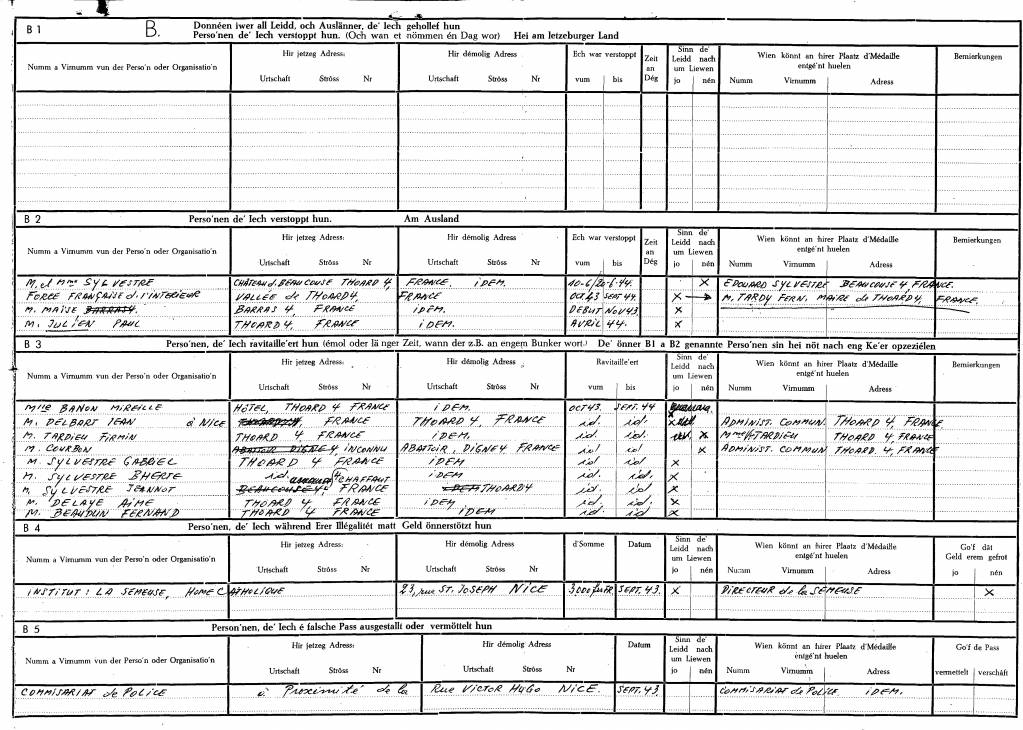 B 1 B. Donnéen iwer all Leidd, och Auslänner, de' Iech gehollef hun
Perso'nen de' Iech verstoppt hun. (Och wan et nömmen én Dag wor) Hei am letzeburger Land
Numm a Virnumm vun der Perso'n oder Organisatio'n
Hir jetzeg Adress:
Urtschaft Ströss Nr
Hir démolig Adress
Urtschaft Ströss Nr
Ech war verstoppt
vum bis
Zeit an Dég
Sinn de' Leidd nach um Liewen
jo nén
Wien könnt an hirer Plaatz d'Médaille entgé'nt huelen
Numm Virnumm Adress
Bemierkungen
B 2 Perso'nen de' Iech verstoppt hun. Am Ausland
Numm a Virnumm vun der Perso'n oder Organisatio'n
Hir jetzeg Adress:
Urtschaft Ströss Nr
Hir démolig Adress
Urtschaft Ströss Nr
Ech war verstoppt
vum bis
Zeit an Dég
Sinn de' Leidd nach um Liewen
jo nén
Wien könnt an hirer Plaatz d'Médaille entgé'nt huelen
Numm Virnumm Adress
Bemierkungen
M. et Mme SYLVESTRE CHÂTEAU d. BEAUCOUSE THOARD 4, FRANCE. IDEM. 10-6/20-6-44. X EDOUARD SYLVESTRE BEAUCOUSE 4, FRANCE.
FORCE FRANÇAISE d. l'INTERIEUR VALLÉE de THOARD 4, FRANCE OCT. 43 SEPT 44. X → M. TARDY FERN. MAIRE de THOARD 4, FRANCE.
M. MAÏSE BARRAS 4. BARRAS 4, FRANCE IDEM. DEBUT NOV 43. X
M. JULIEN PAUL THOARD 4, FRANCE IDEM. AVRIL 44. X
B 3 Perso'nen, de' Iech ravitaille'ert hun (émol oder länger Zeit, wann der z.B. an engem Bunker wort.) De' önner B1 a B2 genannte Perso'nen sin hei nöt nach eng Ke'er opzeziélen
Numm a Virnumm vun der Perso'n oder Organisatio'n
Hir jetzeg Adress:
Urtschaft Ströss Nr
Hir démolig Adress
Urtschaft Ströss Nr
Ravitaille'ert
vum bis
Sinn de' Leidd nach um Liewen
jo nén
Wien könnt an hirer Plaatz d'Médaille entgé'nt huelen
Numm Virnumm Adress
Bemierkungen
Mlle BANON MIREILLE HÔTEL, THOARD 4 FRANCE IDEM. OCT 43. SEPT. 44
M. DELBART JEAN à NICE FRANCE THOARD 4, FRANCE id. id. X ADMINIST. COMMUN. THOARD 4, FRANCE
M. TARDIEU FIRMIN THOARD 4 FRANCE IDEM. id. id. X Mme TARDIEU THOARD 4, FRANCE
M. COURBON ABATOIR DIGNE 4 INCONNU ABATOIR, DIGNE 4 FRANCE id id X ADMINIST. COMMUN THOARD. 4, FRANCE
M. SYLVESTRE GABRIEL THOARD 4 FRANCE IDEM id id X
M. SYLVESTRE id. CHAFFAUT IDEM id id. X
M. SYLVESTRE JEANNOT BEAUCOUSE 4, FRANCE THOARD 4 id. id. X
M. DELAYE AIME THOARD 4, FRANCE IDEM id. id. X
M. BEAUDUN FERNAND THOARD 4 FRANCE IDEM id. id. X
B 4 Perso'nen, de' Iech während Erer Illégalitét matt Geld önnerstötzt hun
Numm a Virnumm vun der Perso'n oder Organisatio'n
Hir jetzeg Adress:
Urtschaft Ströss Nr
Hir démolig Adress
Urtschaft Ströss Nr
d'Somme
Datum
Sinn de' Leidd nach um Liewen
jo nén
Wien könnt an hirer Plaatz d'Médaille entgé'nt huelen
Numm Virnumm Adress
Go'f dät Geld erem gefrot
jo nén
INSTITUT: LA SEMEUSE, HOME CATHOLIQUE 23, rue ST. JOSEPH NICE 3000 SEPT. 43. X DIRECTEUR de la SEMEUSE X
B 5 Person'nen, de' Iech é falsche Pass ausgestallt oder vermöttelt hun
Numm a Virnumm vun der Perso'n oder Organisatio'n
Hir jetzeg Adress:
Urtschaft Ströss Nr
Hir démolig Adress
Urtschaft Ströss Nr
Datum
Sinn de' Leidd nach um Liewen
jo nén
Wien könnt an hirer Plaatz d'Médaille entgé'nt huelen
Numm Virnumm Adress
Go'f de Pass
vermettelt verschäft
COMMISARIAT de POLICE à Proximité de la Rue VICTOR HUGO NICE. SEPT. 43. COMMISARIAT de POLICE. IDEM.